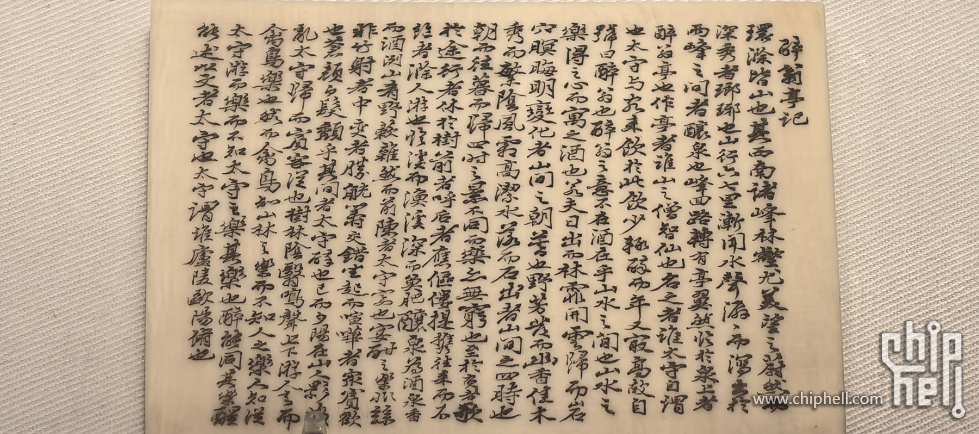 醉翁亭記
環滁皆山也其西南諸峰林壑尤美望之蔚然而
深秀者瑯琊也山行六七里漸聞水聲潺潺而瀉出於
兩峰之間者釀泉也峰回路轉有亭翼然臨於泉上者
醉翁亭也作亭者誰山之僧智仙也名之者誰太守自謂
也太守与客來飲於此飲少輒醉而年又最高故自
號曰醉翁也醉翁之意不在酒在乎山水之間也山水之
樂得之心而寓之酒也若夫日出而林霏開雲歸而岩
穴暝晦明變化者山間之朝暮也野芳發而幽香佳木
秀而繁陰風霜高潔水落而石出者山間之四時也
朝而往暮而歸四時之景不同而樂亦無窮也至於負者歌
於途行者休於樹前者呼后者應傴僂提攜往來而不
絕者滁人游也臨溪而漁溪深而魚肥釀泉為酒泉香
而酒洌山肴野蔌雜然而前陳者太守宴也宴酣之樂非絲
非竹射者中奕者勝觥籌交錯坐起而喧嘩者衆賓歡
也蒼顏白髮頹乎其間者太守醉也已而夕陽在山人影散
亂太守歸而賓客從也樹林陰翳鳴聲上下游人去而
禽鳥樂也然而禽鳥知山林之樂而不知人之樂人知從
太守游而樂而不知太守之樂其樂也醉能同其樂醒
能述以文者太守也太守謂誰廬陵歐陽脩也
chip hell
www.chiphell.com